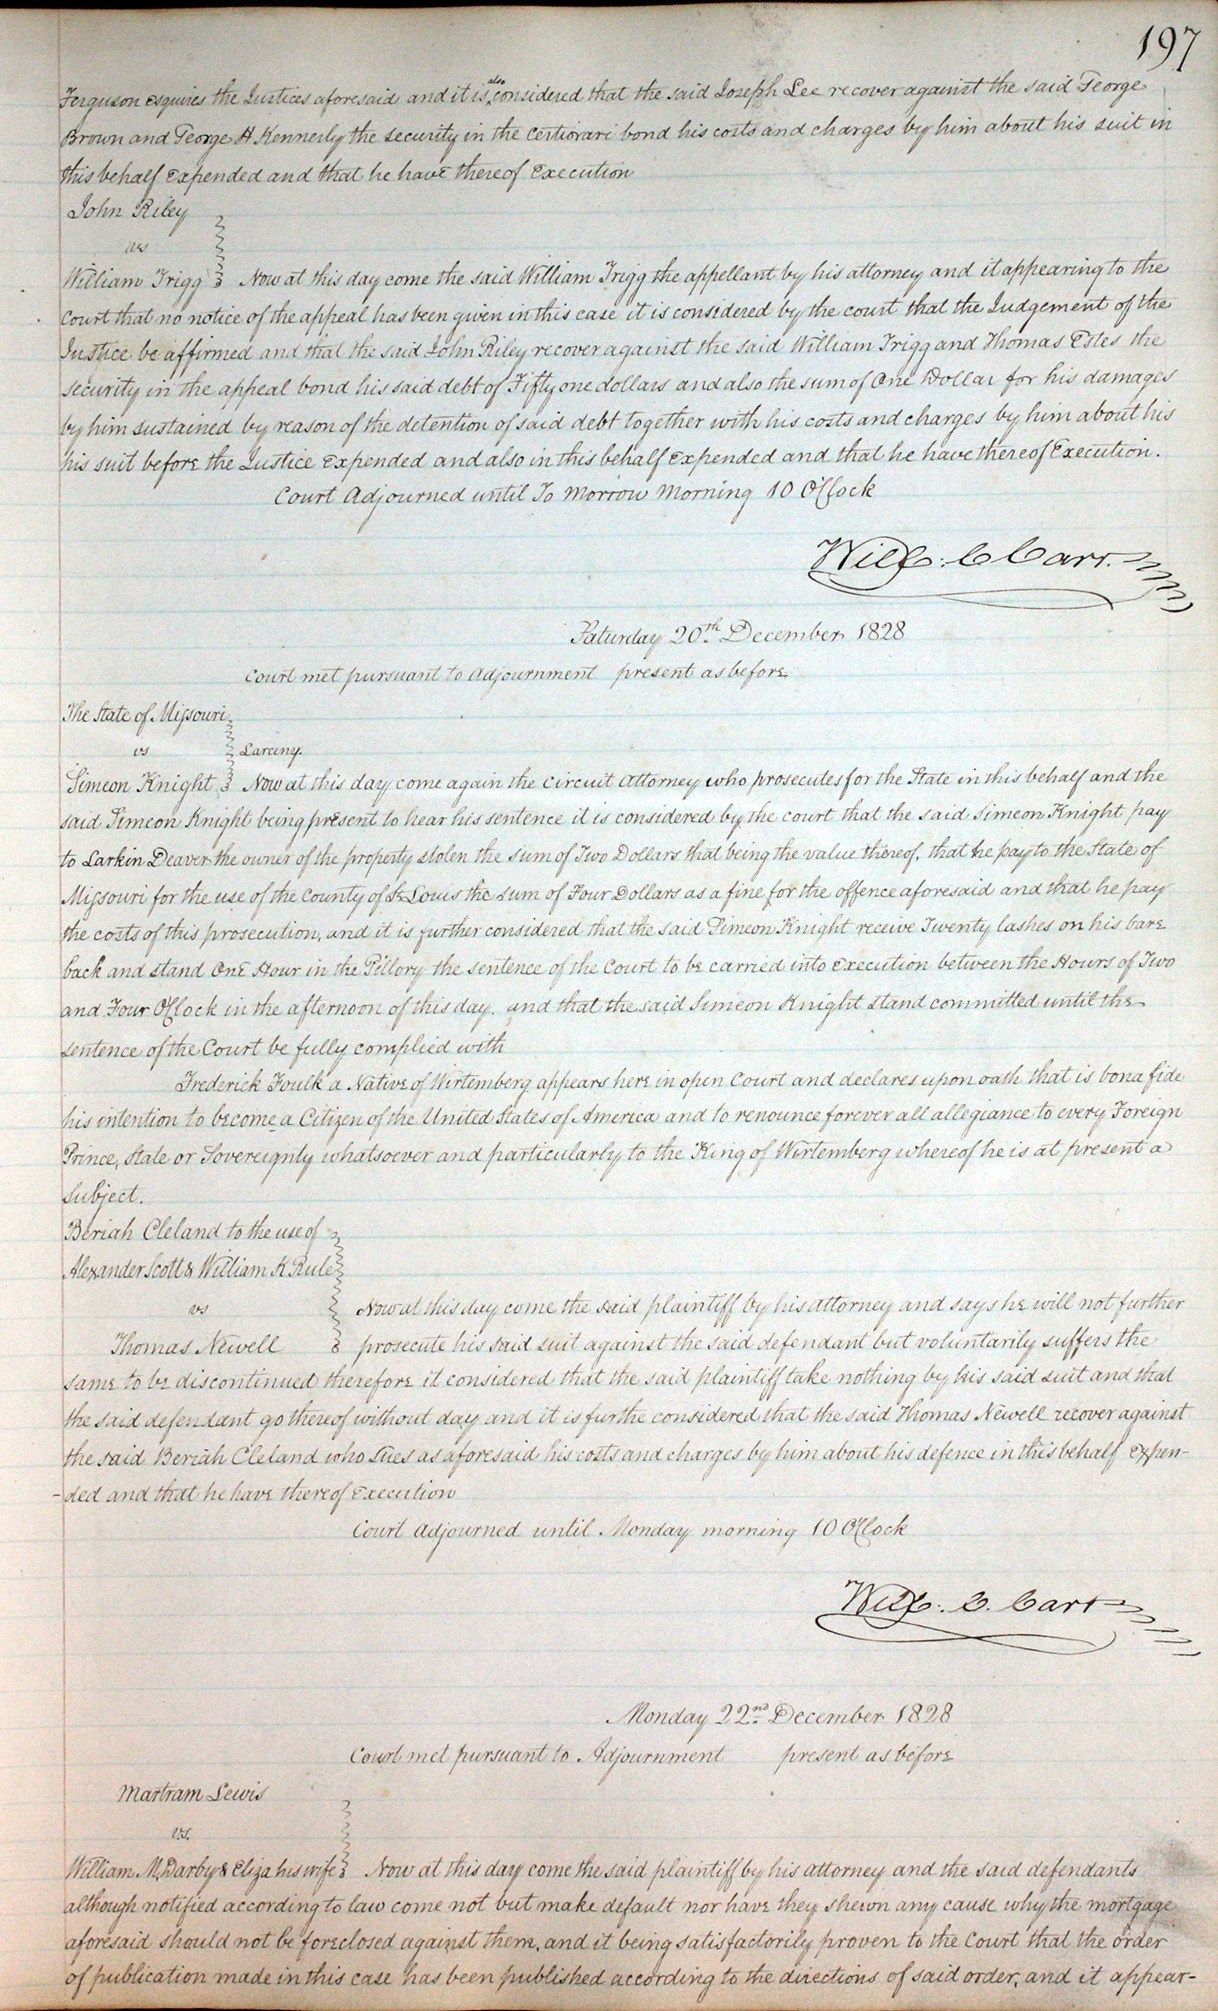 197
Ferguson esquires the Justices aforesaid and it is also considered that the said Joseph Lee recover against the said George
Brown and George H Kennerly the security in the certiorari bond his costs and charges by him about his suit in
this behalf expended and that he have thereof Execution
John Riley
vs
William Trigg Now at this day come the said William Trigg the appellant by his attorney and it appearing to the
court that no notice of the appeal has been given in this case it is considered by the court that the Judgement of the
Justice be affirmed and that the said John Riley recover against the said William Trigg and Thomas Estes the
security in the appeal bond his said debt of Fifty one dollars and also the sum of One Dollar for his damages
by him sustained by reason of the detention of said debt together with his costs and charges by him about his
his suit before the Justice expended and also in this behalf expended and that he have thereof Execution.
Court Adjourned until To Morrow Morning 10 O'Clock
Will: C Carr.
Saturday 20th December 1828
Court met pursuant to Adjournment present as before
The State of Missouri
vs Larceny.
Simeon Knight Now at this day come again the circuit attorney who prosecutes for the State in this behalf and the
said Simeon Knight being present to hear his sentence it is considered by the court that the said Simeon Knight pay
to Larkin Deaver the owner of the property stolen the sum of Two Dollars that being the value thereof, that he pay to the State of
Missouri for the use of the County of St Louis the sum of Four Dollars as a fine for the offence aforesaid and that he pay
the costs of this prosecution, and it is further considered that the said Simeon Knight receive Twenty lashes on his bare
back and stand One Hour in the Pillory the sentence of the Court to be carried into Execution between the Hours of Two
and Four O'Clock in the afternoon of this day. and that the said Simeon Knight stand committed until the
sentence of the Court be fully complied with
Frederick Foulk a Native of Wirtemberg appears here in open Court and declares upon oath that is bona fide
his intention to become a Citizen of the United States of America and to renounce forever all allegiance to every Foreign
Prince, State or Sovereignty whatsoever and particularly to the King of Wirtemberg whereof he is at present a
subject.
Beriah Cleland to the use of
Alexander Scott & William K Rule
vs Now at this day come the said plaintiff by his attorney and says he will not further
Thomas Newell prosecute his said suit against the said defendant but voluntarily suffers the
same to be discontinued therefore it considered that the said plaintiff take nothing by his said suit and that
the said defendant go thereof without day and it is furthe considered that the said Thomas Newell recover against
the said Beriah Cleland who sues as aforesaid his costs and charges by him about his defence in this behalf expen-
-ded and that he have thereof Execution
Court adjourned until Monday morning 10 O'Clock
Will: C. Carr
Monday 22nd December 1828
Court met pursuant to Adjournment present as before
Martram Lewis
vs.
William M, Darby & Eliza his wife Now at this day come the said plaintiff by his attorney and the said defendants
although notified according to law come not but make default nor have they shewn any cause why the mortgage
aforesaid should not be foreclosed against them, and it being satisfactorily proven to the Court that the order
of publication made in this case has been published according to the directions of said order, and it appear-